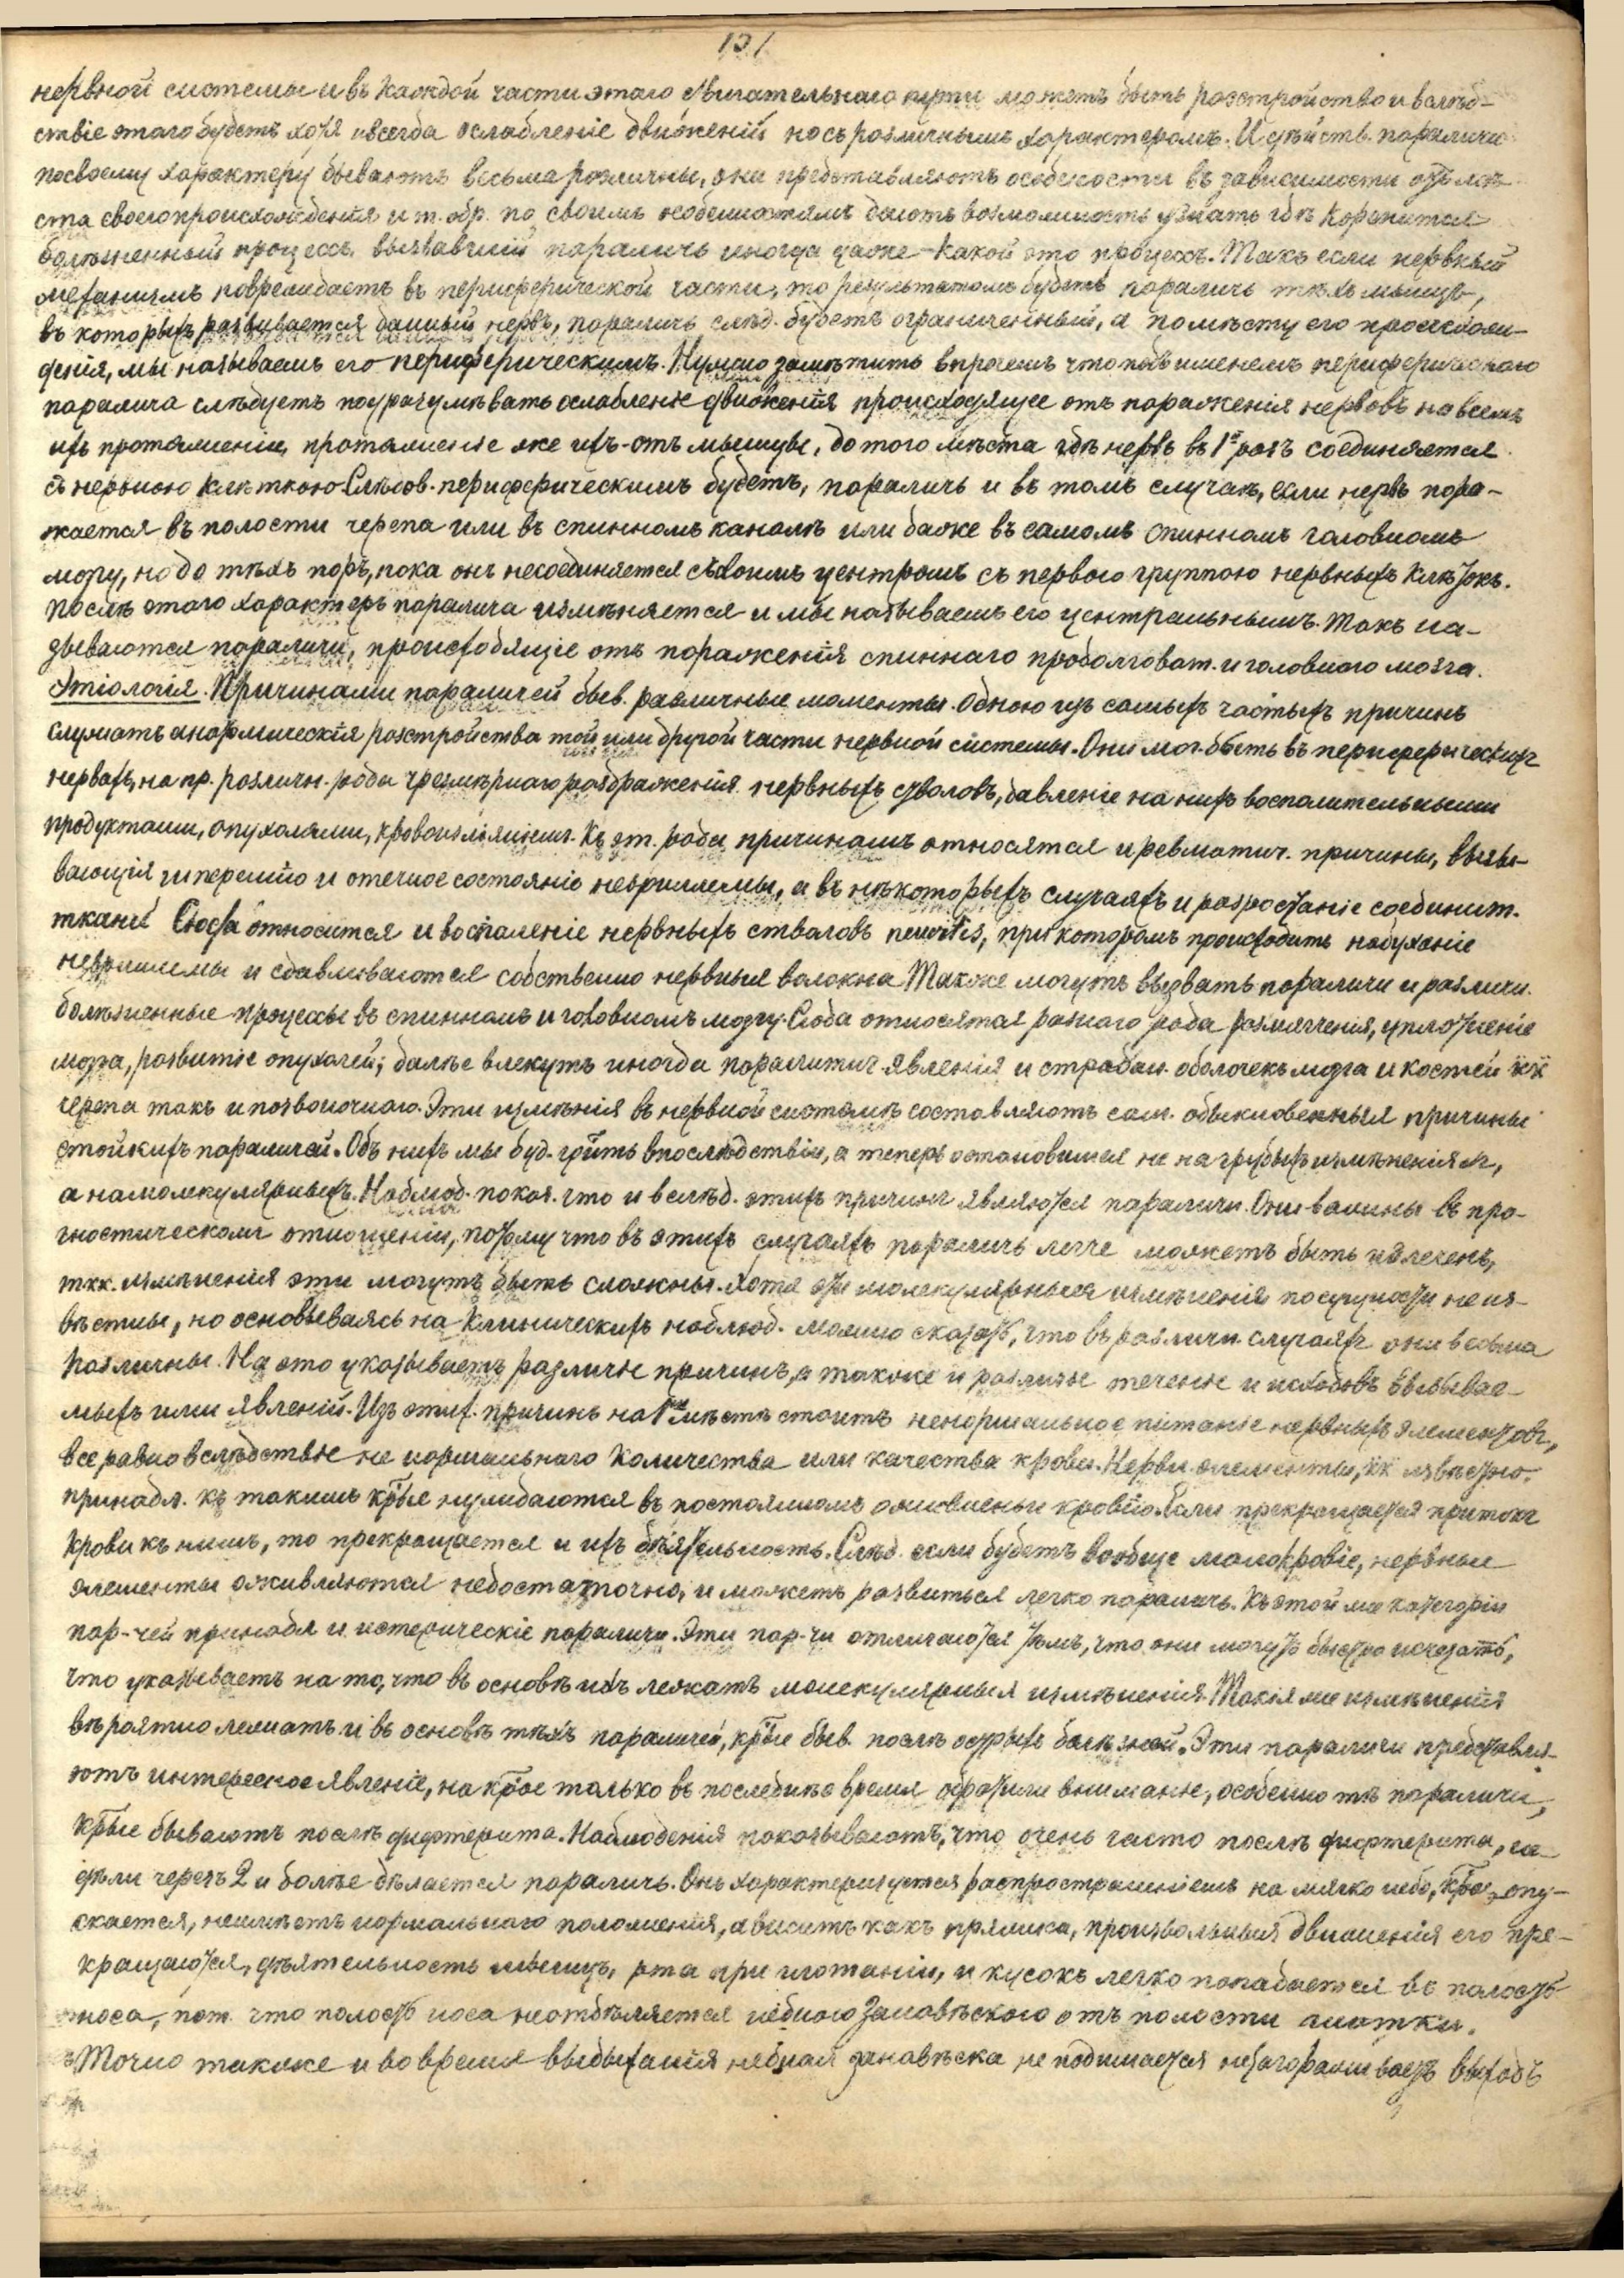 131
нервной системы и въ каждой части этаго двигательнаго пути можетъ быть разстройство и вслѣд-
ствіе этаго будетъ хотя и всегда ослабленіе движеній но съ различнымъ характеромъ. И дѣйств. параличи
по своему характеру бываютъ весьма различны, они представляютъ особеености въ зависимости отъ мѣ-
ста своего происхожденія и т. обр. по своимъ особенностямъ даютъ возможность узнать гдѣ коренится
болѣзненный процессъ вызвавшій параличъ иногда даже какой это процессъ. Такъ если нервный
механизмъ повреждаетъ въ периферической части, то результатомъ будетъ параличъ тѣхъ мышцъ,
въ которыхъ развивается данный нервъ, параличъ слѣд. будетъ ограниченный, а по мѣсту его происхож-
денія, мы называемъ его периферическимъ. Нужно замѣтить впрочемъ что подъ именемъ периферическаго
паралича слѣдуетъ подразумѣвать ослабленіе движенія происходящее отъ пораженія нервовъ на всемъ
ихъ протяженіи, протяженіе же ихъ-отъ мышцы, до того мѣста гдѣ нервъ въ 1й разъ соединяется
съ нервною клѣткою. Слѣдов. периферическимъ будетъ, параличъ и въ томъ случаѣ, если нервъ пора-
жается въ полости черепа или въ спинномъ каналѣ или даже въ самомъ спинномъ головномъ
мозгу, но до тѣхъ поръ, пока онъ не соединяется съ своимъ центромъ съ первою группою нервныхъ клѣтокъ.
Послѣ этаго характеръ паралича измѣняется и мы называемъ его центральнымъ. Такъ на-
зываются параличи, происходящіе отъ пораженія спиннаго продолговат. и головного мозга.
Этіологія. Причинами параличей быв. различные моменты. Одною изъ самыхъ частыхъ причинъ
служатъ анатомическія разстройства той или другой части нервной системы. Они мог. быть въ периферическихъ
нервахъ, на пр. различн. рода чрезмѣрнаго раздраженія нервныхъ стволовъ, давленіе на нихъ воспалительными
продуктами, опухолями, кровоизліяніемъ. Къ эт. рода причинамъ относятся и ревматич. причины, вызы-
вающія гиперемію и отечное состояніе невриллемы, а въ нѣкоторыхъ случаяхъ и разростаніе соединит.
ткани. Сюда относится и воспаленіе нервныхъ стволовъ neuritis, при которомъ происходитъ набуханіе
невриллемы и сдавливаются собственно нервныя волокна. Также могутъ вызвать параличи и различн.
болѣзненные процессы въ спинномъ и головномъ мозгу. Сюда относятся разнаго рода размягченія, уплотненіе
мозга, развитіе опухолей; далѣе влекутъ иногда паралитич. явленія и страдан. оболочекъ мозга и костей кк
черепа такъ и позвоночнаго. Эти измѣнія въ нервной системѣ составляютъ сам. обыкновенныя причины
стойкихъ параличей. Объ нихъ мы буд. гоїть впослѣдствіи, а теперь остановимся не на грубыхъ измѣненіях,
а на молекулярныхъ. Наблюд. показ. что и вслѣд. этихъ причинъ являются параличи. Они важны въ про-
гностическомъ отношеніи, потому что въ этихъ случаяхъ параличъ легче можетъ быть излеченъ,
ткк. измѣненія эти могутъ быть сложны. Хотя эти молекулярныя измѣненія по сущности не из-
вѣстны, но основываясь на клиническихъ наблюд. можно сказать, что въ различн. случаяхъ они весьма
различны. На это указываетъ различіе причинъ, а также и различіе теченія и исходовъ вызывае-
мыхъ ими явленій. Изъ этих. причинъ на 1мъ мѣстѣ стоитъ ненормальное питаніе нервныхъ элементовъ,
все равно вслѣдствіе не нормальнаго количества или качества крови. Нервн. элементы, кк извѣстно.
принадл. къ такимъ крые нуждаются въ постоянномъ оживленіи кровію. Если прекращается притокъ
крови къ нимъ, то прекращается и ихъ дѣятельность. Слѣд. если будетъ вообще малокровіе, нервные
элементы оживляются недостаточно, и можетъ развиться легко параличъ. Къ этой же категоріи
пар-чей принадл и истерическіе параличи. Эти пар-чи отличаются тѣмъ, что они могутъ быстро исчезать,
что указываетъ на то, что въ основѣ ихъ лежатъ молекулярныя измѣненія. Такія же измѣненія
вѣроятно лежатъ и въ основѣ тѣхъ параличей, крые быв. послѣ острыхъ болѣзней. Эти параличи представля-
ютъ интересное явленіе, на крое только въ послѣднее время обратили вниманіе, особенно тѣ параличи,
крые бываютъ послѣ дифтерита. Наблюденія показываютъ, что очень часто послѣ дифтерита, не-
дѣли черезъ 2 и болѣе дѣлается параличъ. Онъ характеризуется распространеніемъ на мягко небо, крое опу-
скается, не имѣетъ нормальнаго положенія, а виситъ какъ тряпка, произвольныя движенія его пре-
кращаются, дѣятельность мышцъ, рта при глотаніи, и кусокъ легко попадается въ полость
носа, пот. что полость носа не отдѣляется небною занавѣскою отъ полости глотки.
Точно также и во время выдыханія небная занавѣска не поднимается не загораживаетъ выходъ